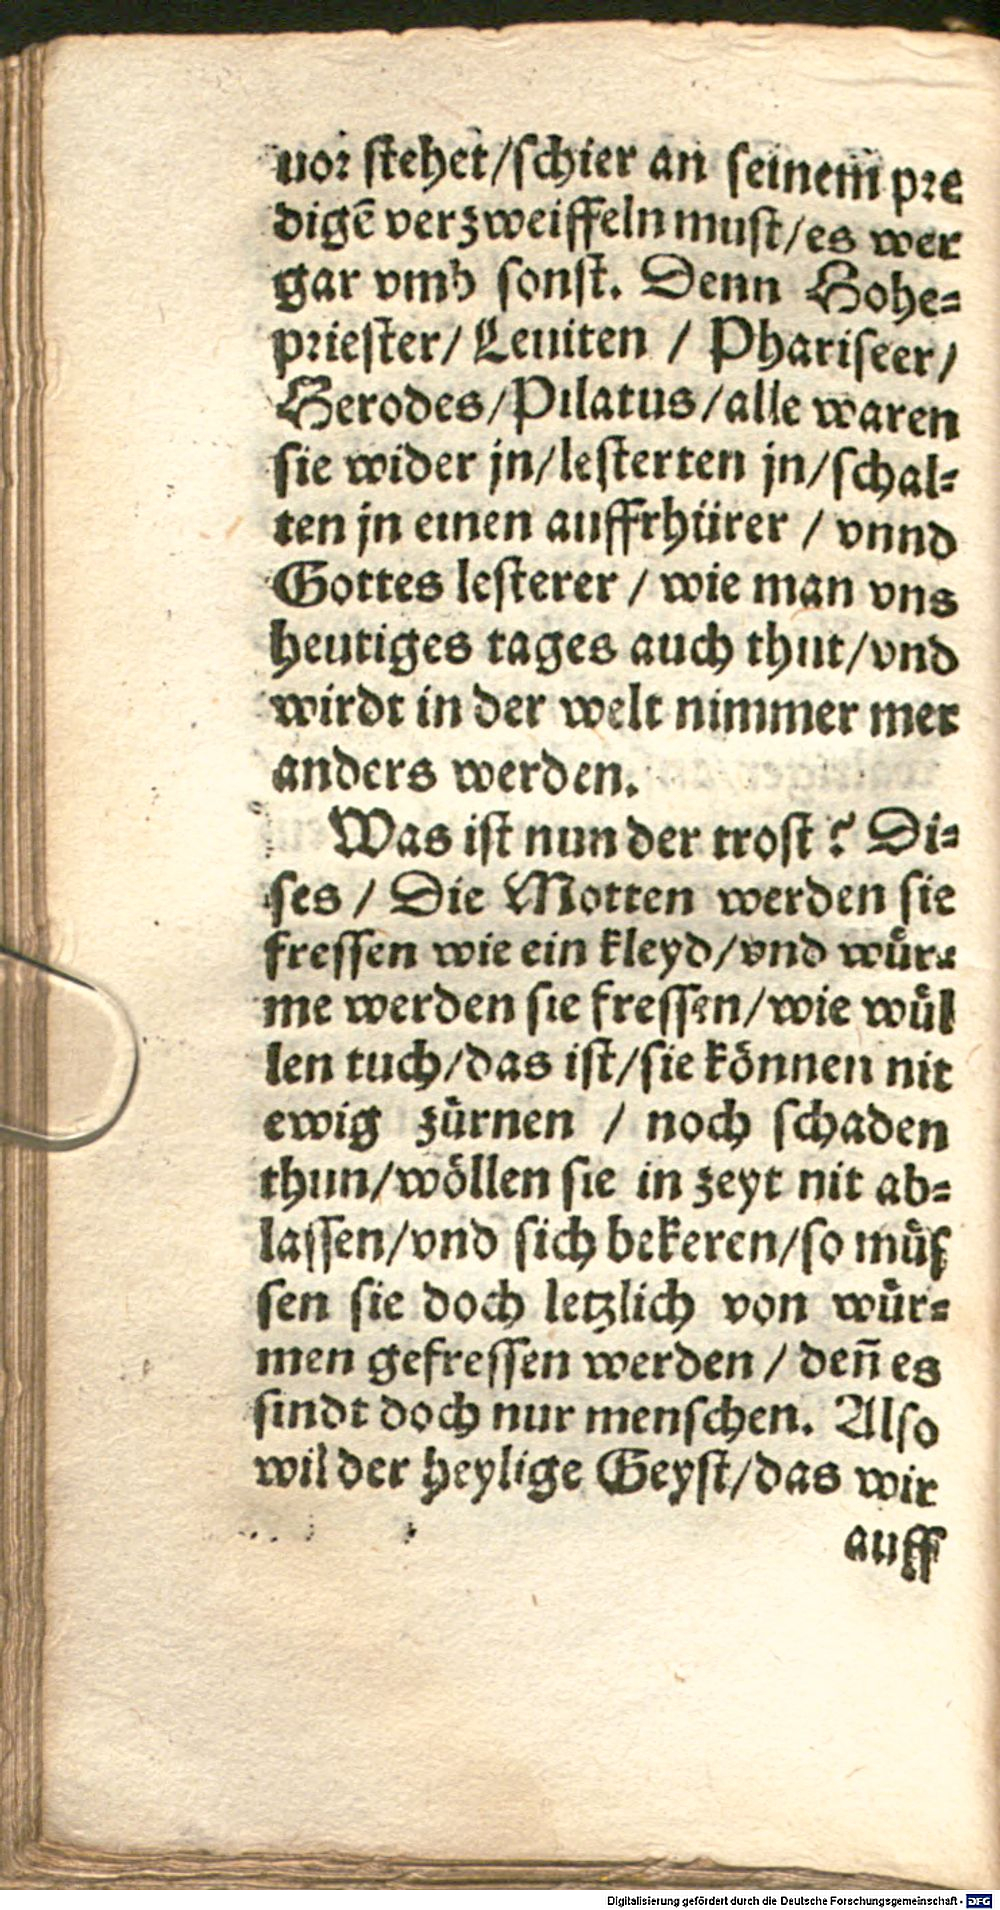 uor stehet/schier an seinem pre
digē verzweiffeln must/es wer
gar vmb sonst. Denn Hohe=
priester/ Leuiten / Phariseer/
Herodes/Pilatus/alle waren
sie wider jn/lesterten jn/schal=
ten jn einen auffrhürer / vnnd
Gottes lesterer / wie man vns
heutiges tages auch thut/vnd
wirdt in der welt nimmer mer
anders werden.
Was ist nun der trost? Di=
ses / Die Motten werden sie
fressen wie ein kleyd/vnd wuͤr=
me werden sie fressen/wie wuͤl
len tuch/das ist/sie koͤnnen nit
ewig zuͤrnen / noch schaden
thun/woͤllen sie in zeyt nit ab=
lassen/vnd sich bekeren/so muͤs
sen sie doch letzlich von wuͤr=
men gefressen werden / deñ es
sindt doch nur menschen. Also
wil der heylige Geyst/das wir
auff
Digitalisierung gefördert durch die Deutsche Forschungsgemeinschaft - DFG